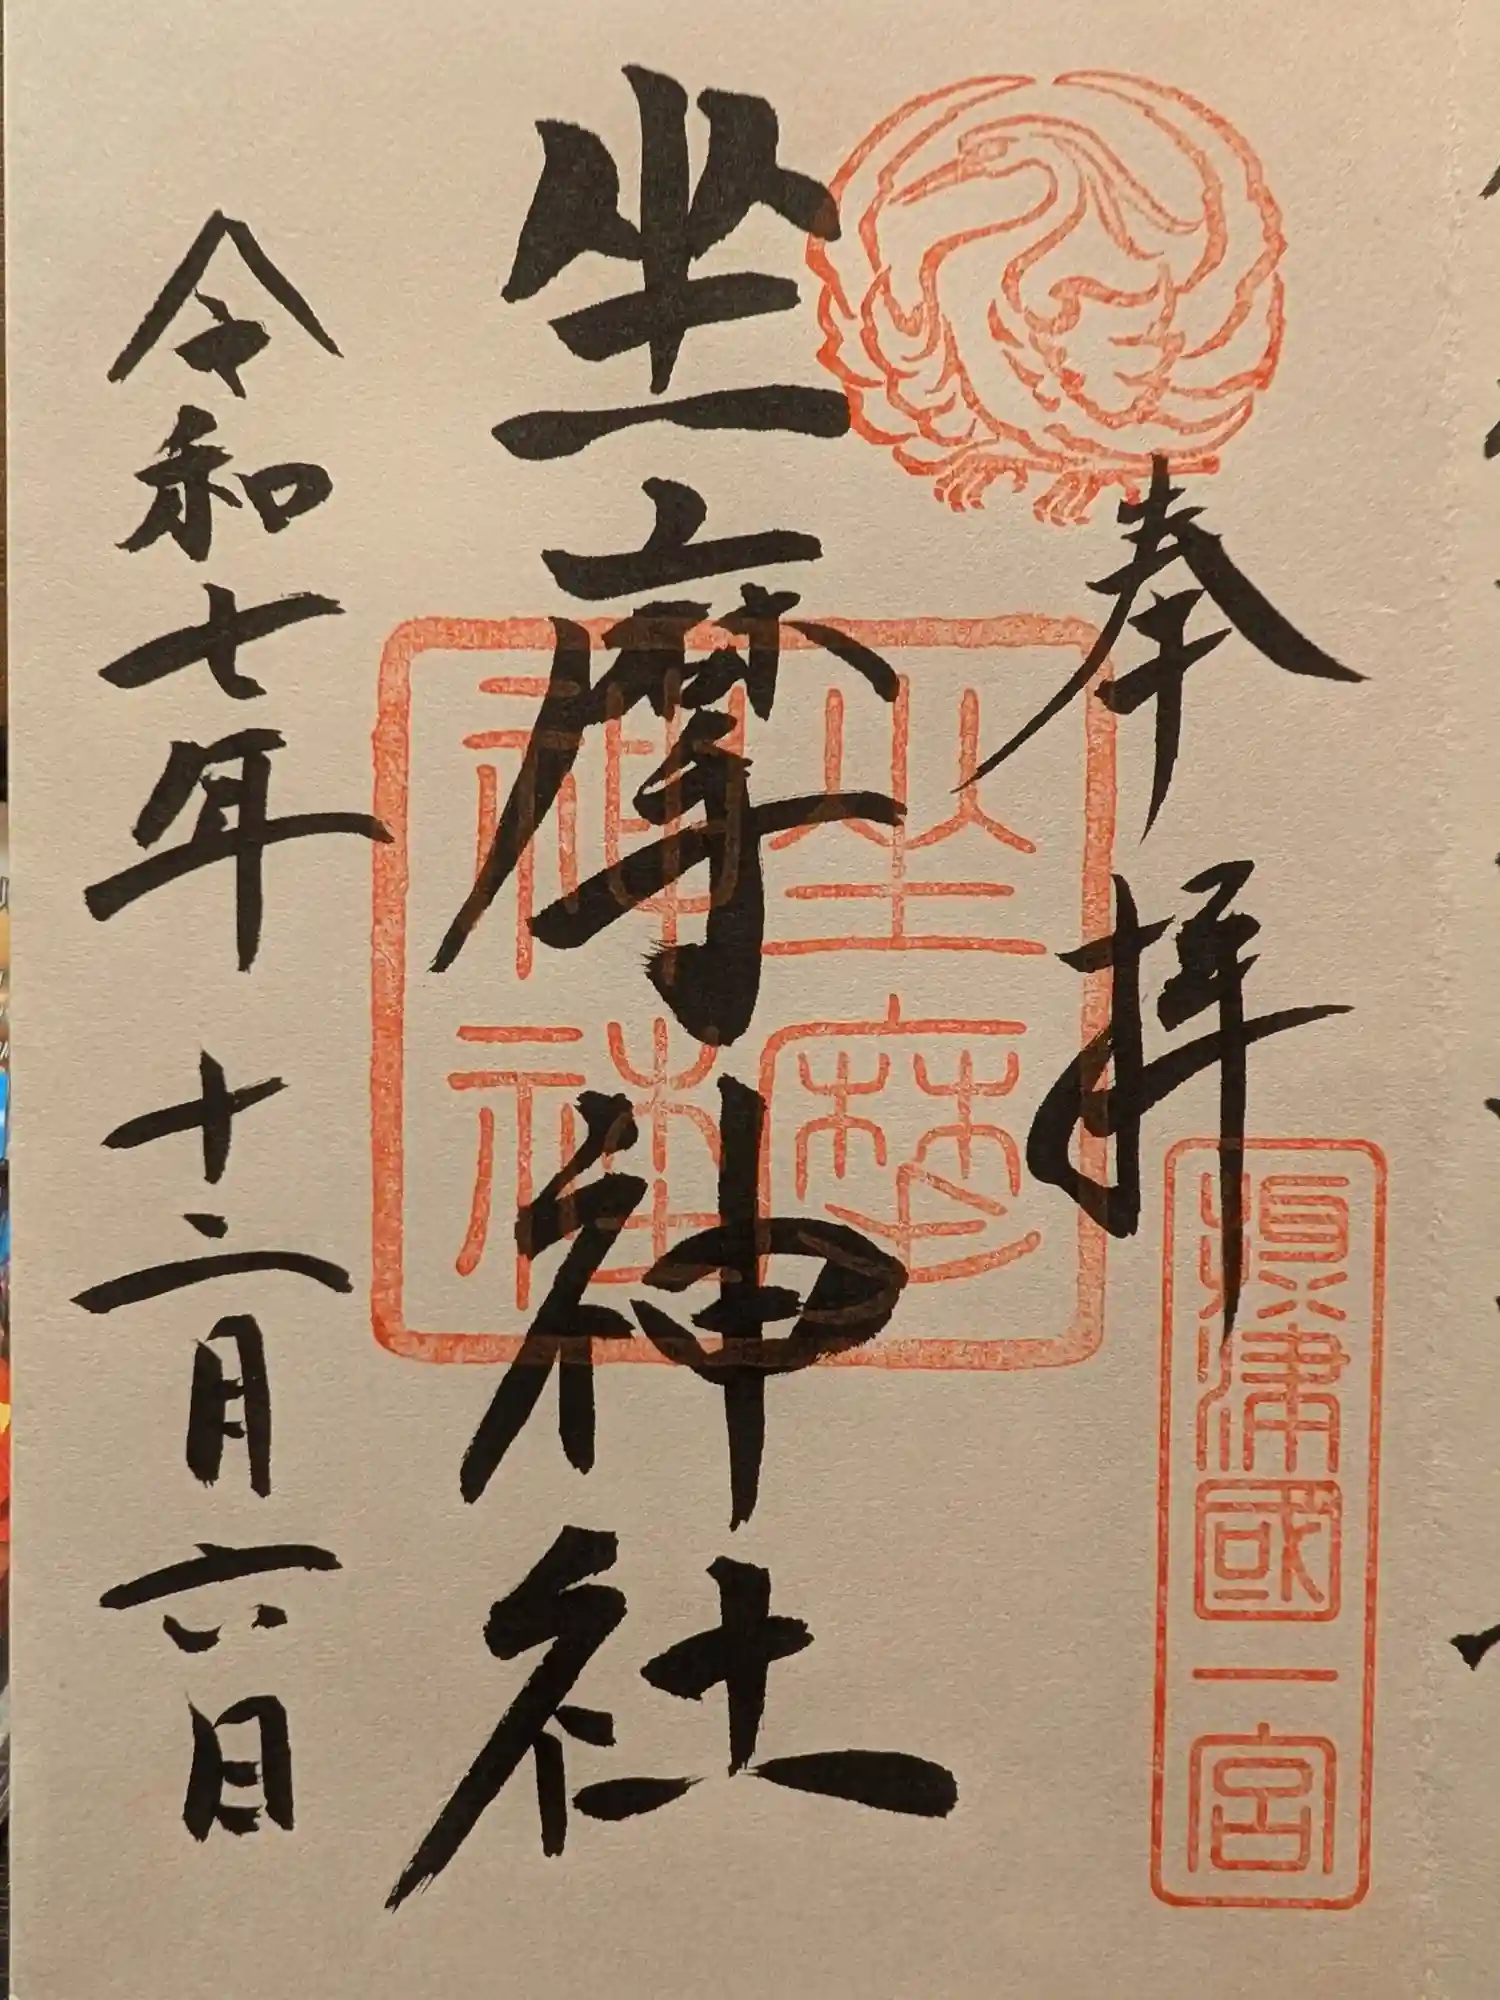 奉拝
摂津國一宮
坐摩神社
坐摩
神社
令和七年十二月六日